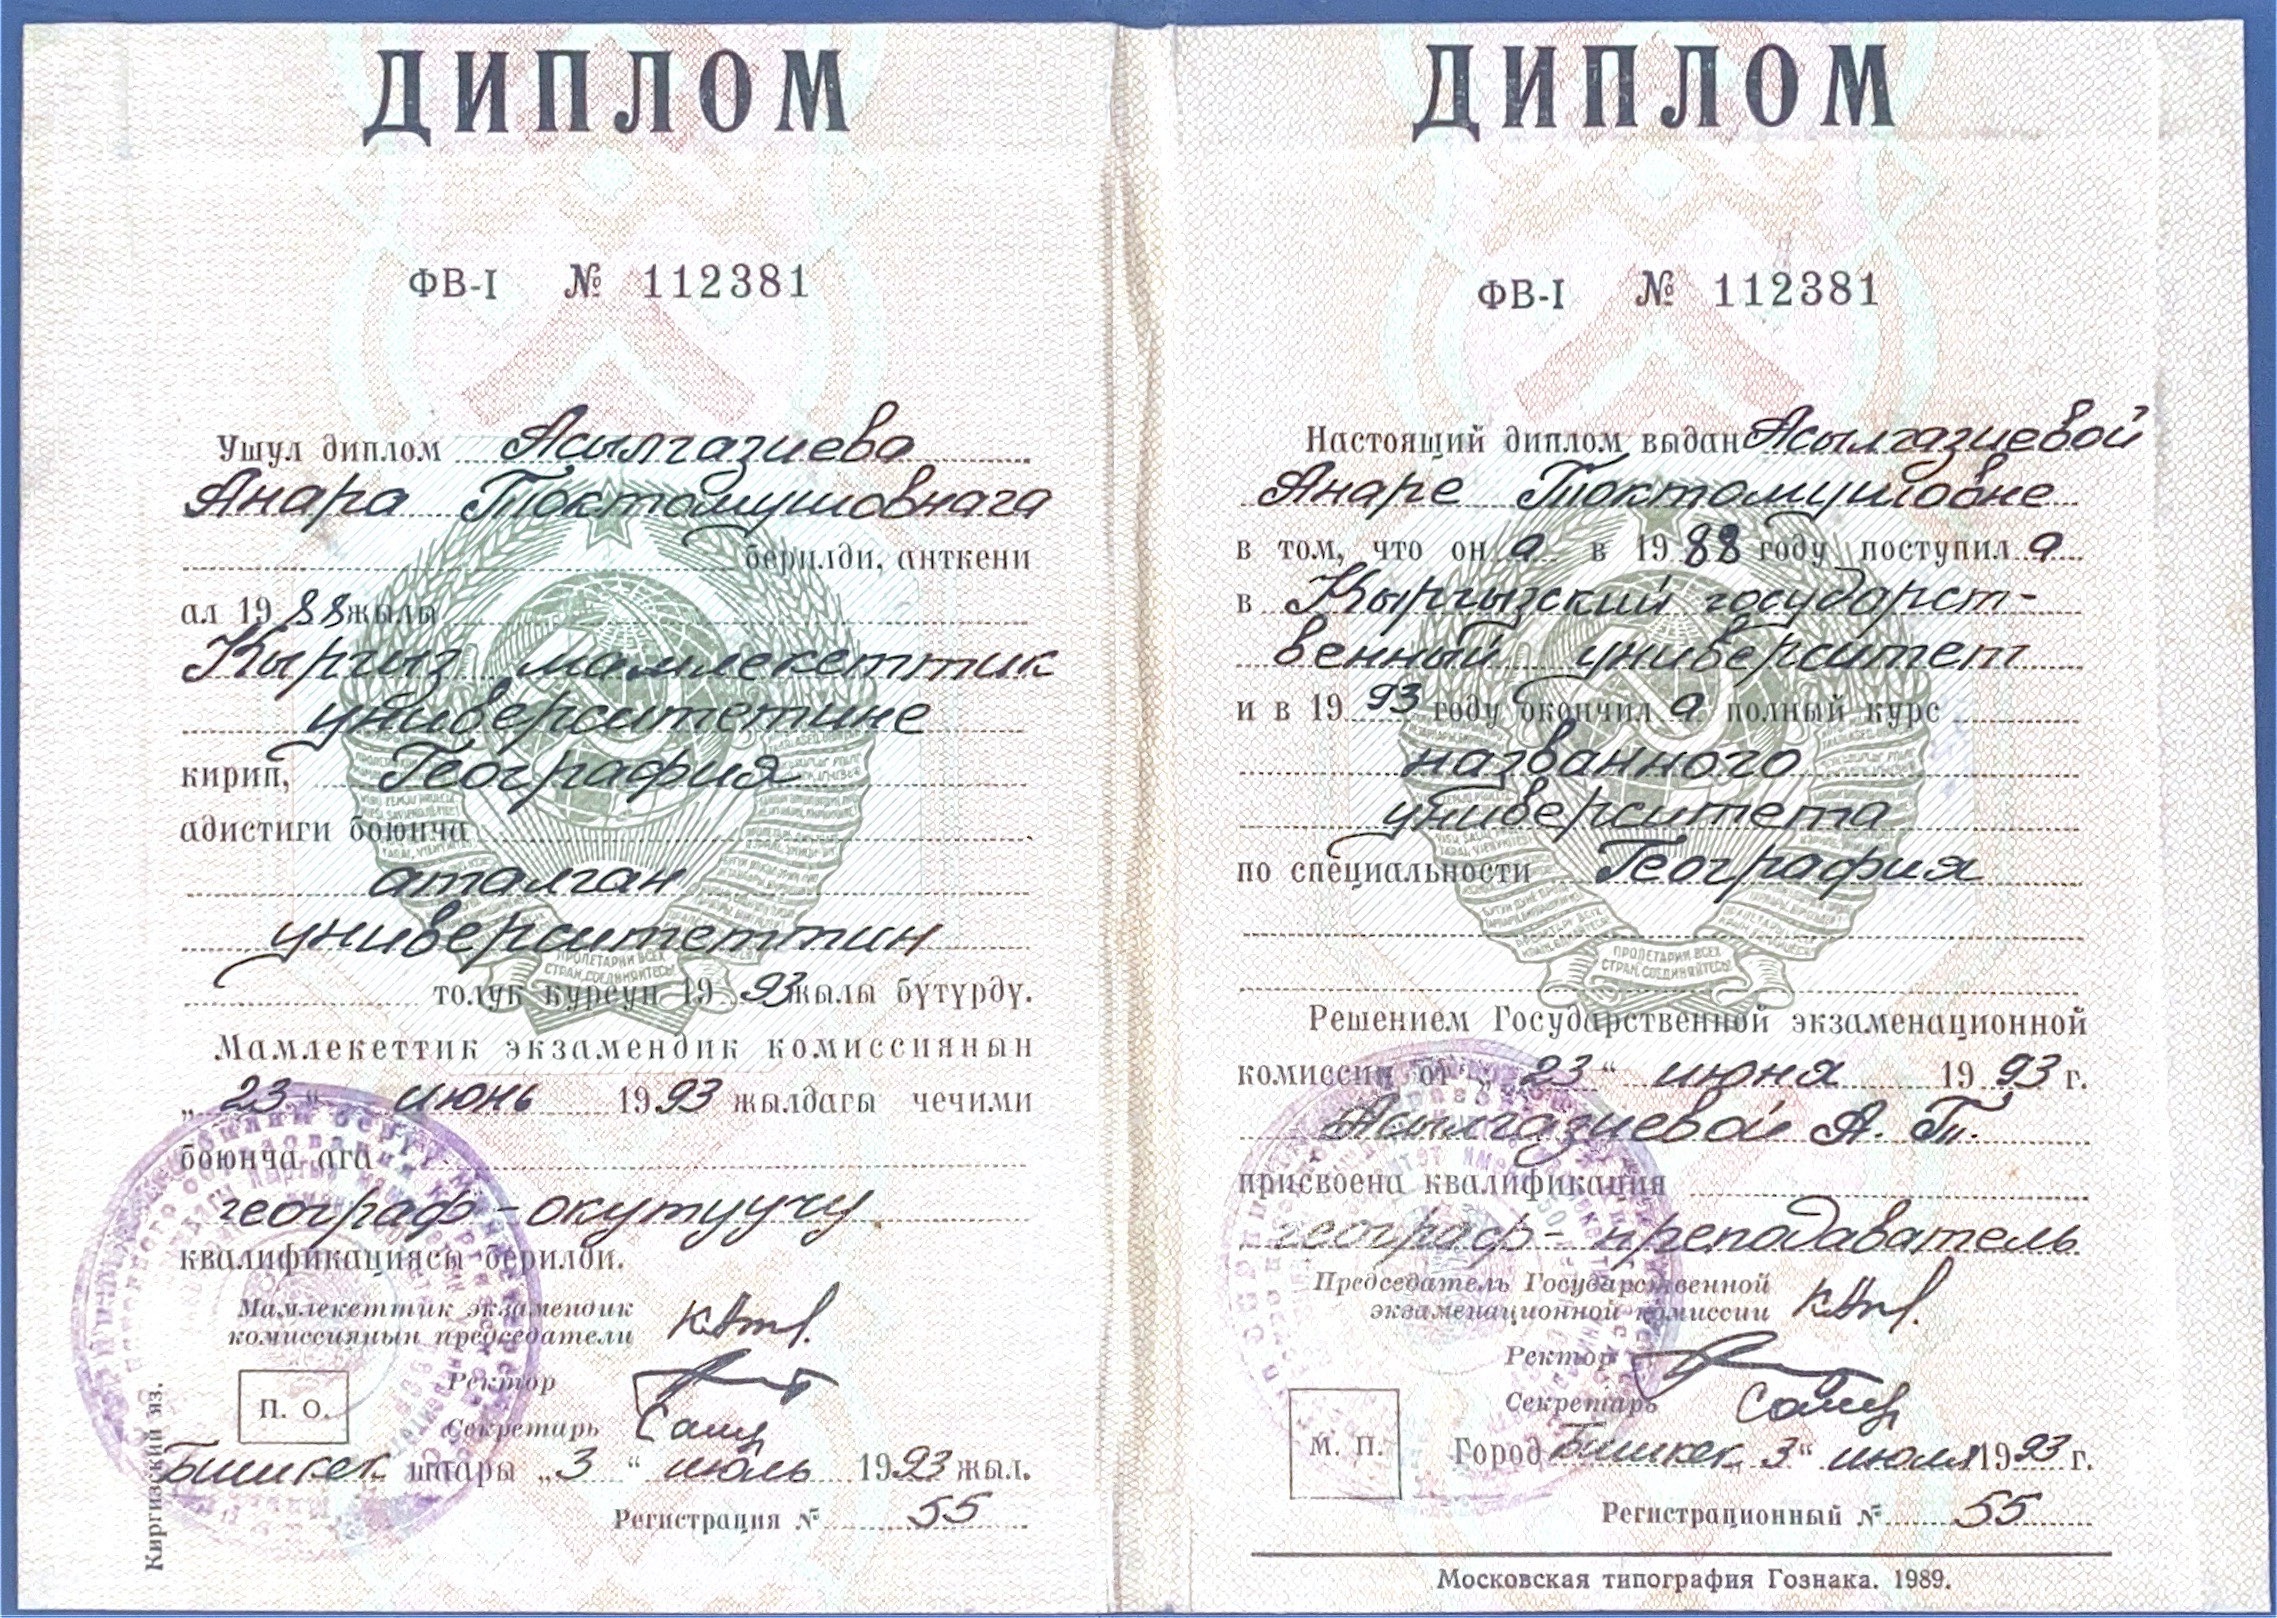 ДИПЛОМ
ФВ-I № 112381
Ушул диплом Асылгазиева
Анара Токтомушовнага
берилди, анткени
ал 1988 жылы
Кыргыз мамлекеттик
университетине
кирип, География
адистиги боюнча
аталган
университеттин
толук курсун 1993 жылы бүтүрдү.
Мамлекеттик экзамендик комиссиянын
„23“ июнь 1993 жылдагы чечими
боюнча ага
географ-окутуучу
квалификациясы берилди.
Мамлекеттик экзамендик
комиссиянын председатели
Ректор
П. О.
Секретарь
Бишкек шаары „3“ июль 1993 жыл.
Регистрация № 55
Киргизский яз.
ДИПЛОМ
ФВ-I № 112381
Настоящий диплом выдан Асылгазиевой
Анаре Токтомушовне
в том, что он а в 1988 году поступил а
в Кыргызский государст-
венный университет
и в 1993 году окончил а полный курс
названного
университета
по специальности География
ПРОЛЕТАРИИ ВСЕХ
СТРАН, СОЕДИНЯЙТЕСЬ!
Решением Государственной экзаменационной
комиссии от „23“ июня 1993 г.
Асылгазиевой А. Т.
присвоена квалификация
географ-преподаватель
Председатель Государственной
экзаменационной комиссии
Ректор
Секретарь
М. П.
Город Бишкек „3“ июля 1993 г.
Регистрационный № 55
Московская типография Гознака. 1989.